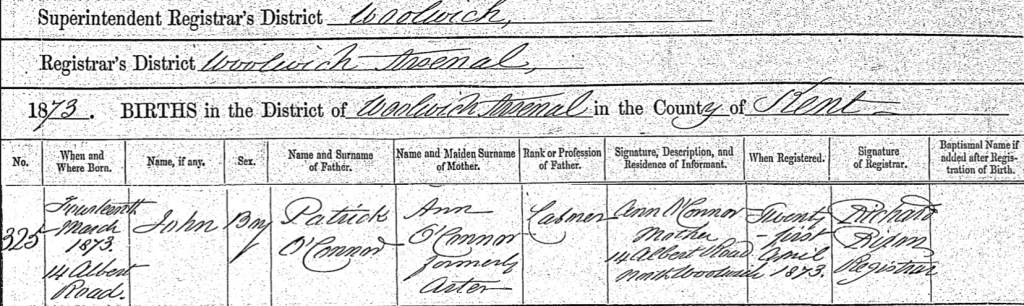 Superintendent Registrar's District Woolwich,
Registrar's District Woolwich Arsenal,
1873. BIRTHS in the District of Woolwich Arsenal in the County of Kent
No. When and Where Born. Name, if any. Sex. Name and Surname of Father. Name and Maiden Surname of Mother. Rank or Profession of Father. Signature, Description, and Residence of Informant. When Registered. Signature of Registrar. Baptismal Name if added after Registration of Birth.
325
Fourteenth
March
1873.
14 Albert
Road.
John
Boy
Patrick
O'Connor
Ann
O'Connor
formerly
Ann O'Connor
Mother
14 Albert Road
North Woolwich
Twenty
-first
April
1873.
Richard
Registrar